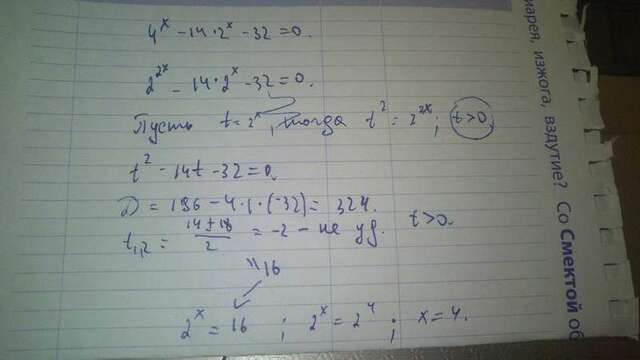 4^x - 14·2^x - 32 = 0.
2^2x - 14·2^x - 32 = 0.
Пусть t = 2^x, тогда t^2 = 2^2x; t>0
t^2 - 14t - 32 = 0.
D = 196 - 4·1·(-32) = 324.
t1,2 = (14±18)/2 = -2 - не уд. t>0.
"16
2^x = 16 ; 2^x = 2^4 ; x = 4.
диарея, изжога, вздутие? Со Смектой об